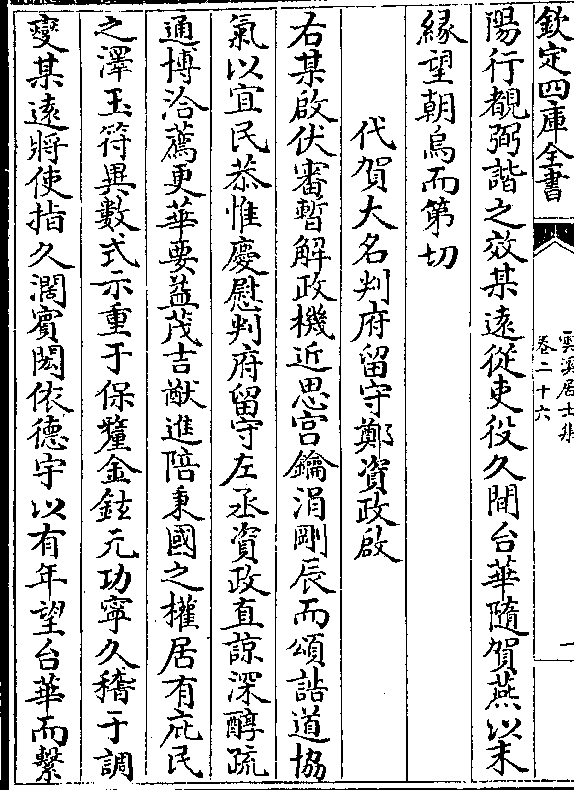 欽定四庫全書
雲溪居士集
卷二十六
一
陽行覩弼諧之效某遠從吏役久間台華隨賀燕以末
縁望朝烏而第切
代賀大名判府留守鄭資政啟
右某啟伏審暫解政機近思宫鑰涓剛辰而頌誥道協
氣以宜民恭惟慶慰判府留守左丞資政直諒深醇疏
通博洽薦更華要益茂吉猷進陪秉國之權居有庇民
之澤玉符異數式示重于保釐金鉉元功寧久稽于調
燮某遠將使指久濶賓閎依德宇以有年望台華而繫